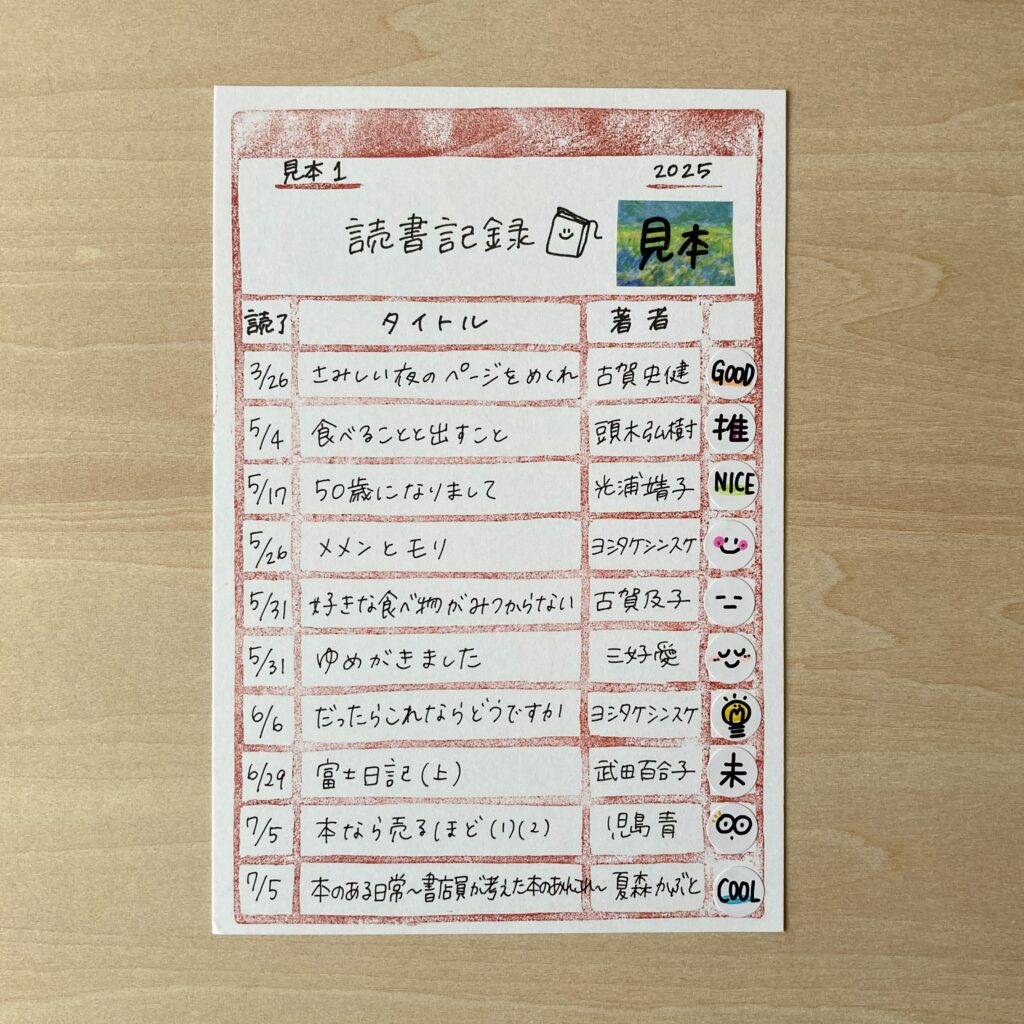 見本1 2025
読書記録 見本
読了 タイトル 著者
3/26 さみしい夜のページをめくれ 古賀史健 GOOD
5/4 食べることと出すこと 頭木弘樹 推
5/17 50歳になりまして 光浦靖子 NICE
5/26 メメンとモリ ヨシタケシンスケ
5/31 好きな食べ物がみつからない 古賀及子
5/31 ゆめがきました 三好愛
6/6 だったらこれならどうですか ヨシタケシンスケ
6/29 富士日記(上) 武田百合子 未
7/5 本なら売るほど(1)(2) 児島青
7/5 本のある日常〜書店員が考えた本のあれこれ〜 夏森かぶと COOL